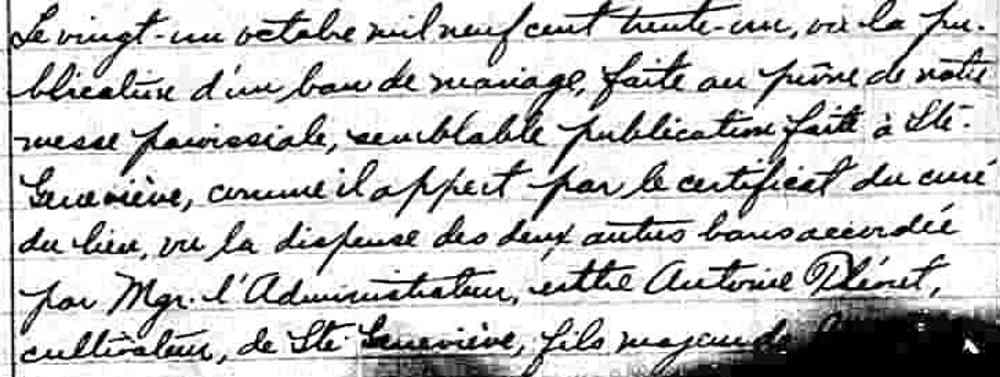 Le vingt-un octobre mil neuf cent trente-un, vu la pu-
blication d'un ban de mariage, faite au prône de notre
messe paroissiale, semblable publication faite à Ste-
Geneviève, comme il appert par le certificat du curé
du lieu, vu la dispense des deux autres bans accordée
par Mgr. l'Administrateur, entre Antoine
cultivateur, de Ste Geneviève, fils majeur de